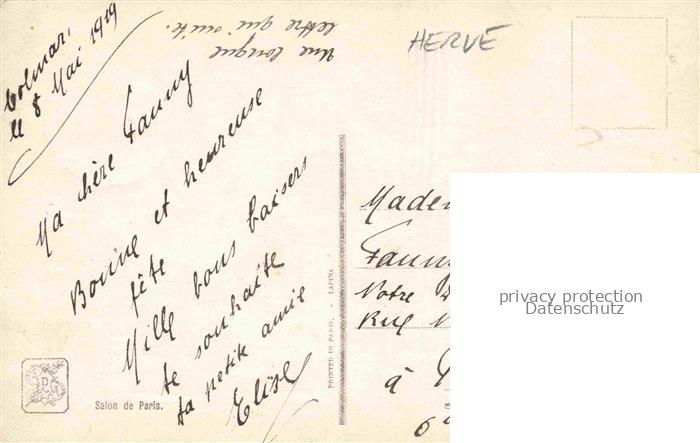 Colmar,
le 8 Mai 1919
Une longue
lettre qui suit.
HERVÉ
Ma chère Fanny
Bonne et heureuse
fête
Mille bons baisers
te souhaite
ta petite amie
Elise
PRINTED IN PARIS. LAPINA
Salon de Paris.
Fanny
Notre
Rue
à
privacy protection
Datenschutz